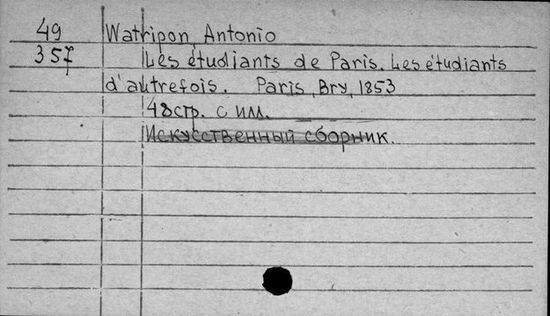 49
357
Watripon, Antonio
Les étudiants de Paris. Les étudiants
d'autrefois. Paris, Bry, 1853
48стр. с илл.
Искусственный сборник.